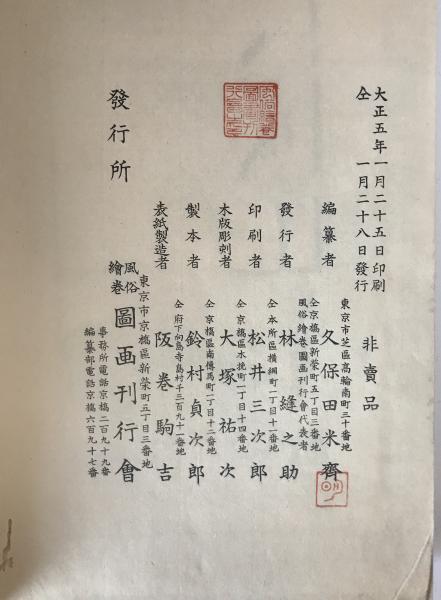 大正五年一月二十五日印刷
仝　一月二十八日發行
非賣品
東京市芝區高輪南町三十番地
編纂者　久保田米齋
仝京橋區新榮町五丁目三番地
風俗繪卷圖画刊行會代表者
發行者　林縫之助
仝本所區横綱町一丁目十一番地
印刷者　松井三次郎
仝京橋區木挽町一丁目十四番地
木版彫刻者　大塚祐次
仝京橋區南傳馬町一丁目十二番地
製本者　鈴村貞次郎
仝府下向島寺島村千三百九十一番地
表紙製造者　阪巻駒吉
發行所
東京市京橋區新榮町五丁目三番地
風俗繪卷圖画刊行會
事務所電話京橋二百九十九番
編纂部電話京橋六百九十七番